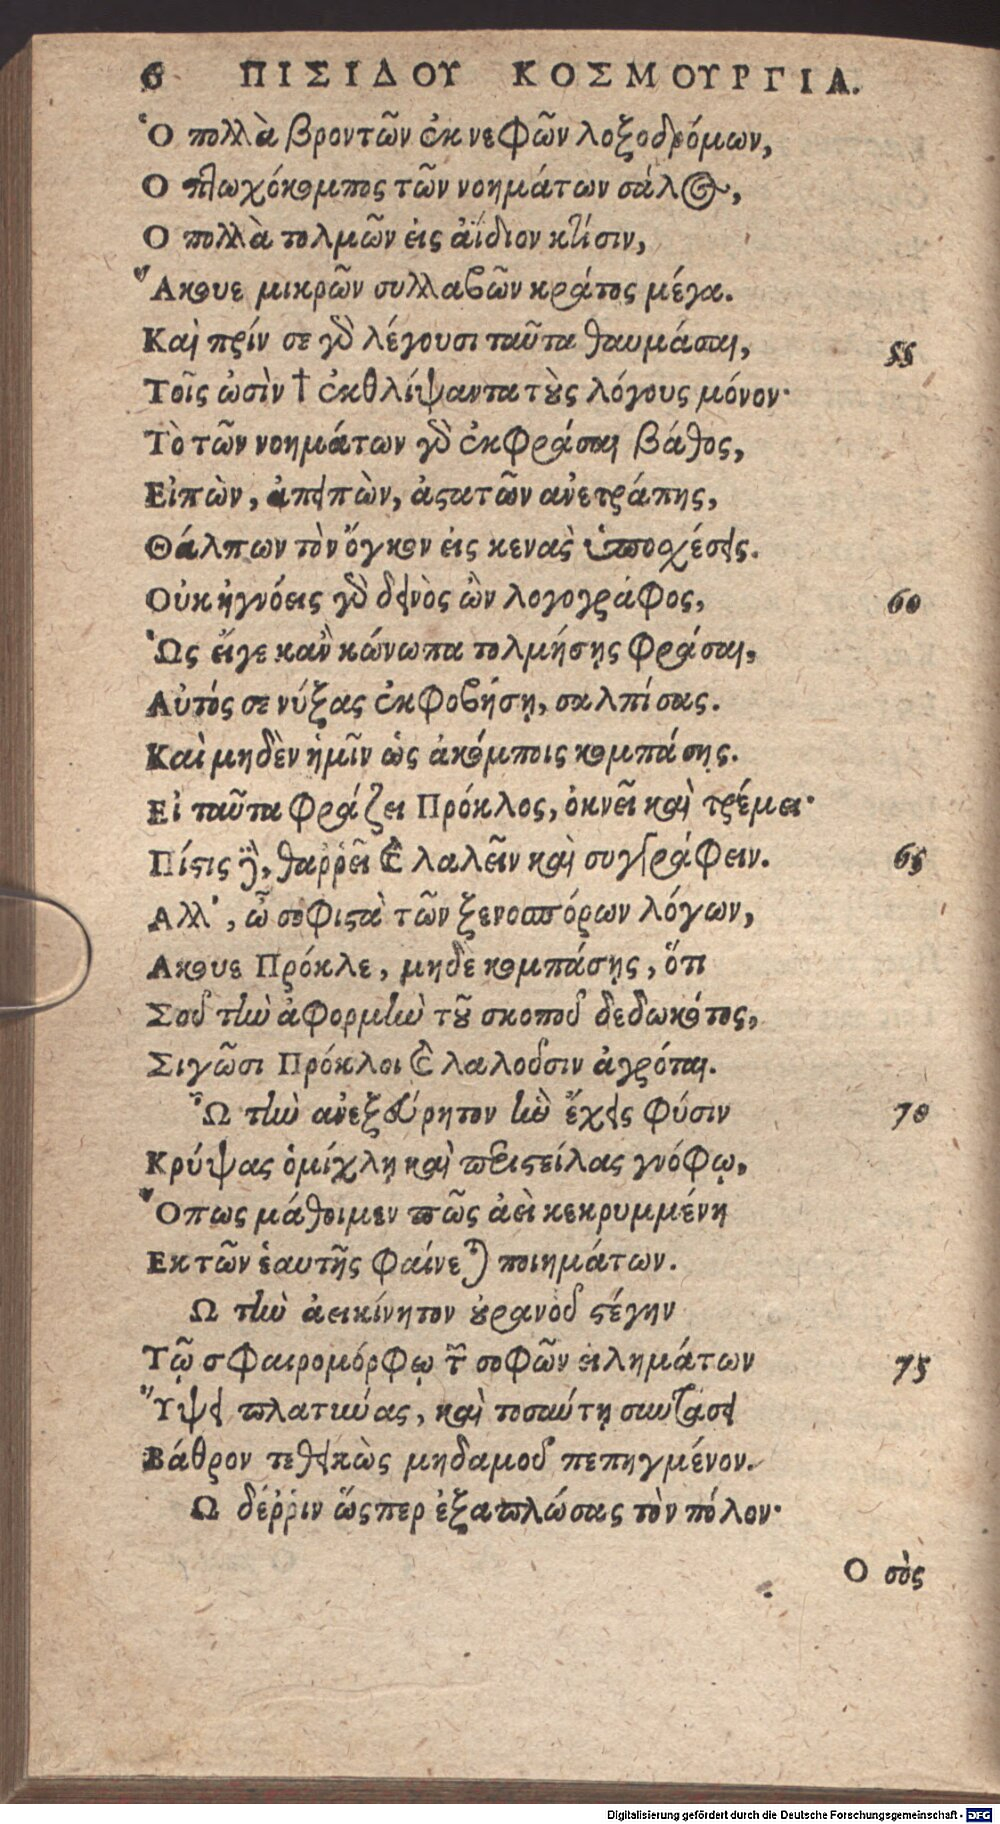 6 ΠΙΣΙΔΟΥ ΚΟΣΜΟΥΡΓΙΑ.
Ὁ πολλὰ βροντῶν ἐκ νεφῶν λοξοδρόμων,
Ο πτωχόκομπος τῶν νοημάτων σάλος,
Ο πολλὰ τολμῶν εἰς ἀΐδιον κτίσιν,
Ἄκουε μικρῶν συλλαβῶν κράτος μέγα.
Καὶ πρίν σε γὰρ λέγουσι ταῦτα θαυμάσαι, 55
Τοῖς ὠσὶν † ἐκθλίψαντα τοὺς λόγους μόνον·
Τὸ τῶν νοημάτων γὰρ ἐκφράσαι βάθος,
Εἰπὼν, ἀπειπὼν, ἀστατῶν ἀνετράπης,
Θάλπων τὸν ὄγκον εἰς κενὰς ὑποσχέσεις.
Οὐκ ἠγνόεις γὰρ δεινὸς ὢν λογογράφος, 60
Ὡς εἴγε κἂν κώνωπα τολμήσῃς φράσαι,
Αὐτός σε νύξας ἐκφοβήσῃ, σαλπίσας.
Καὶ μηδὲν ἡμῖν ὡς ἀκόμποις κομπάσῃς.
Εἰ ταῦτα φράζει Πρόκλος, ὀκνεῖ καὶ τρέμει·
Πίστις δὲ, θαῤῥεῖ καὶ λαλεῖν καὶ συγγράφειν. 65
Αλλ', ὦ σοφιστὰ τῶν ξενοσπόρων λόγων,
Ακουε Πρόκλε, μηδὲ κομπάσῃς, ὅτι
Σοῦ τὴν ἀφορμὴν τοῦ σκοποῦ δεδωκότος,
Σιγῶσι Πρόκλοι καὶ λαλοῦσιν ἀγρόται.
Ὦ τὴν ἀνεξεύρητον ἣν ἔχεις φύσιν 70
Κρύψας ὁμίχλῃ καὶ περιστείλας γνόφῳ,
Ὅπως μάθοιμεν πῶς ἀεὶ κεκρυμμένη
Εκ τῶν ἑαυτῆς φαίνεται ποιημάτων.
Ω τὴν ἀεικίνητον οὐρανοῦ στέγην
Τῷ σφαιρομόρφῳ τῶν σοφῶν εἰλημάτων 75
Ὕψει πλατυύας, καὶ τοσαύτῃ συστάσει
Βάθρον τεθεικὼς μηδαμοῦ πεπηγμένον.
Ω δέῤῥιν ὥσπερ ἐξαπλώσας τὸν πόλον·
Ο σὸς
Digitalisierung gefördert durch die Deutsche Forschungsgemeinschaft - DFG